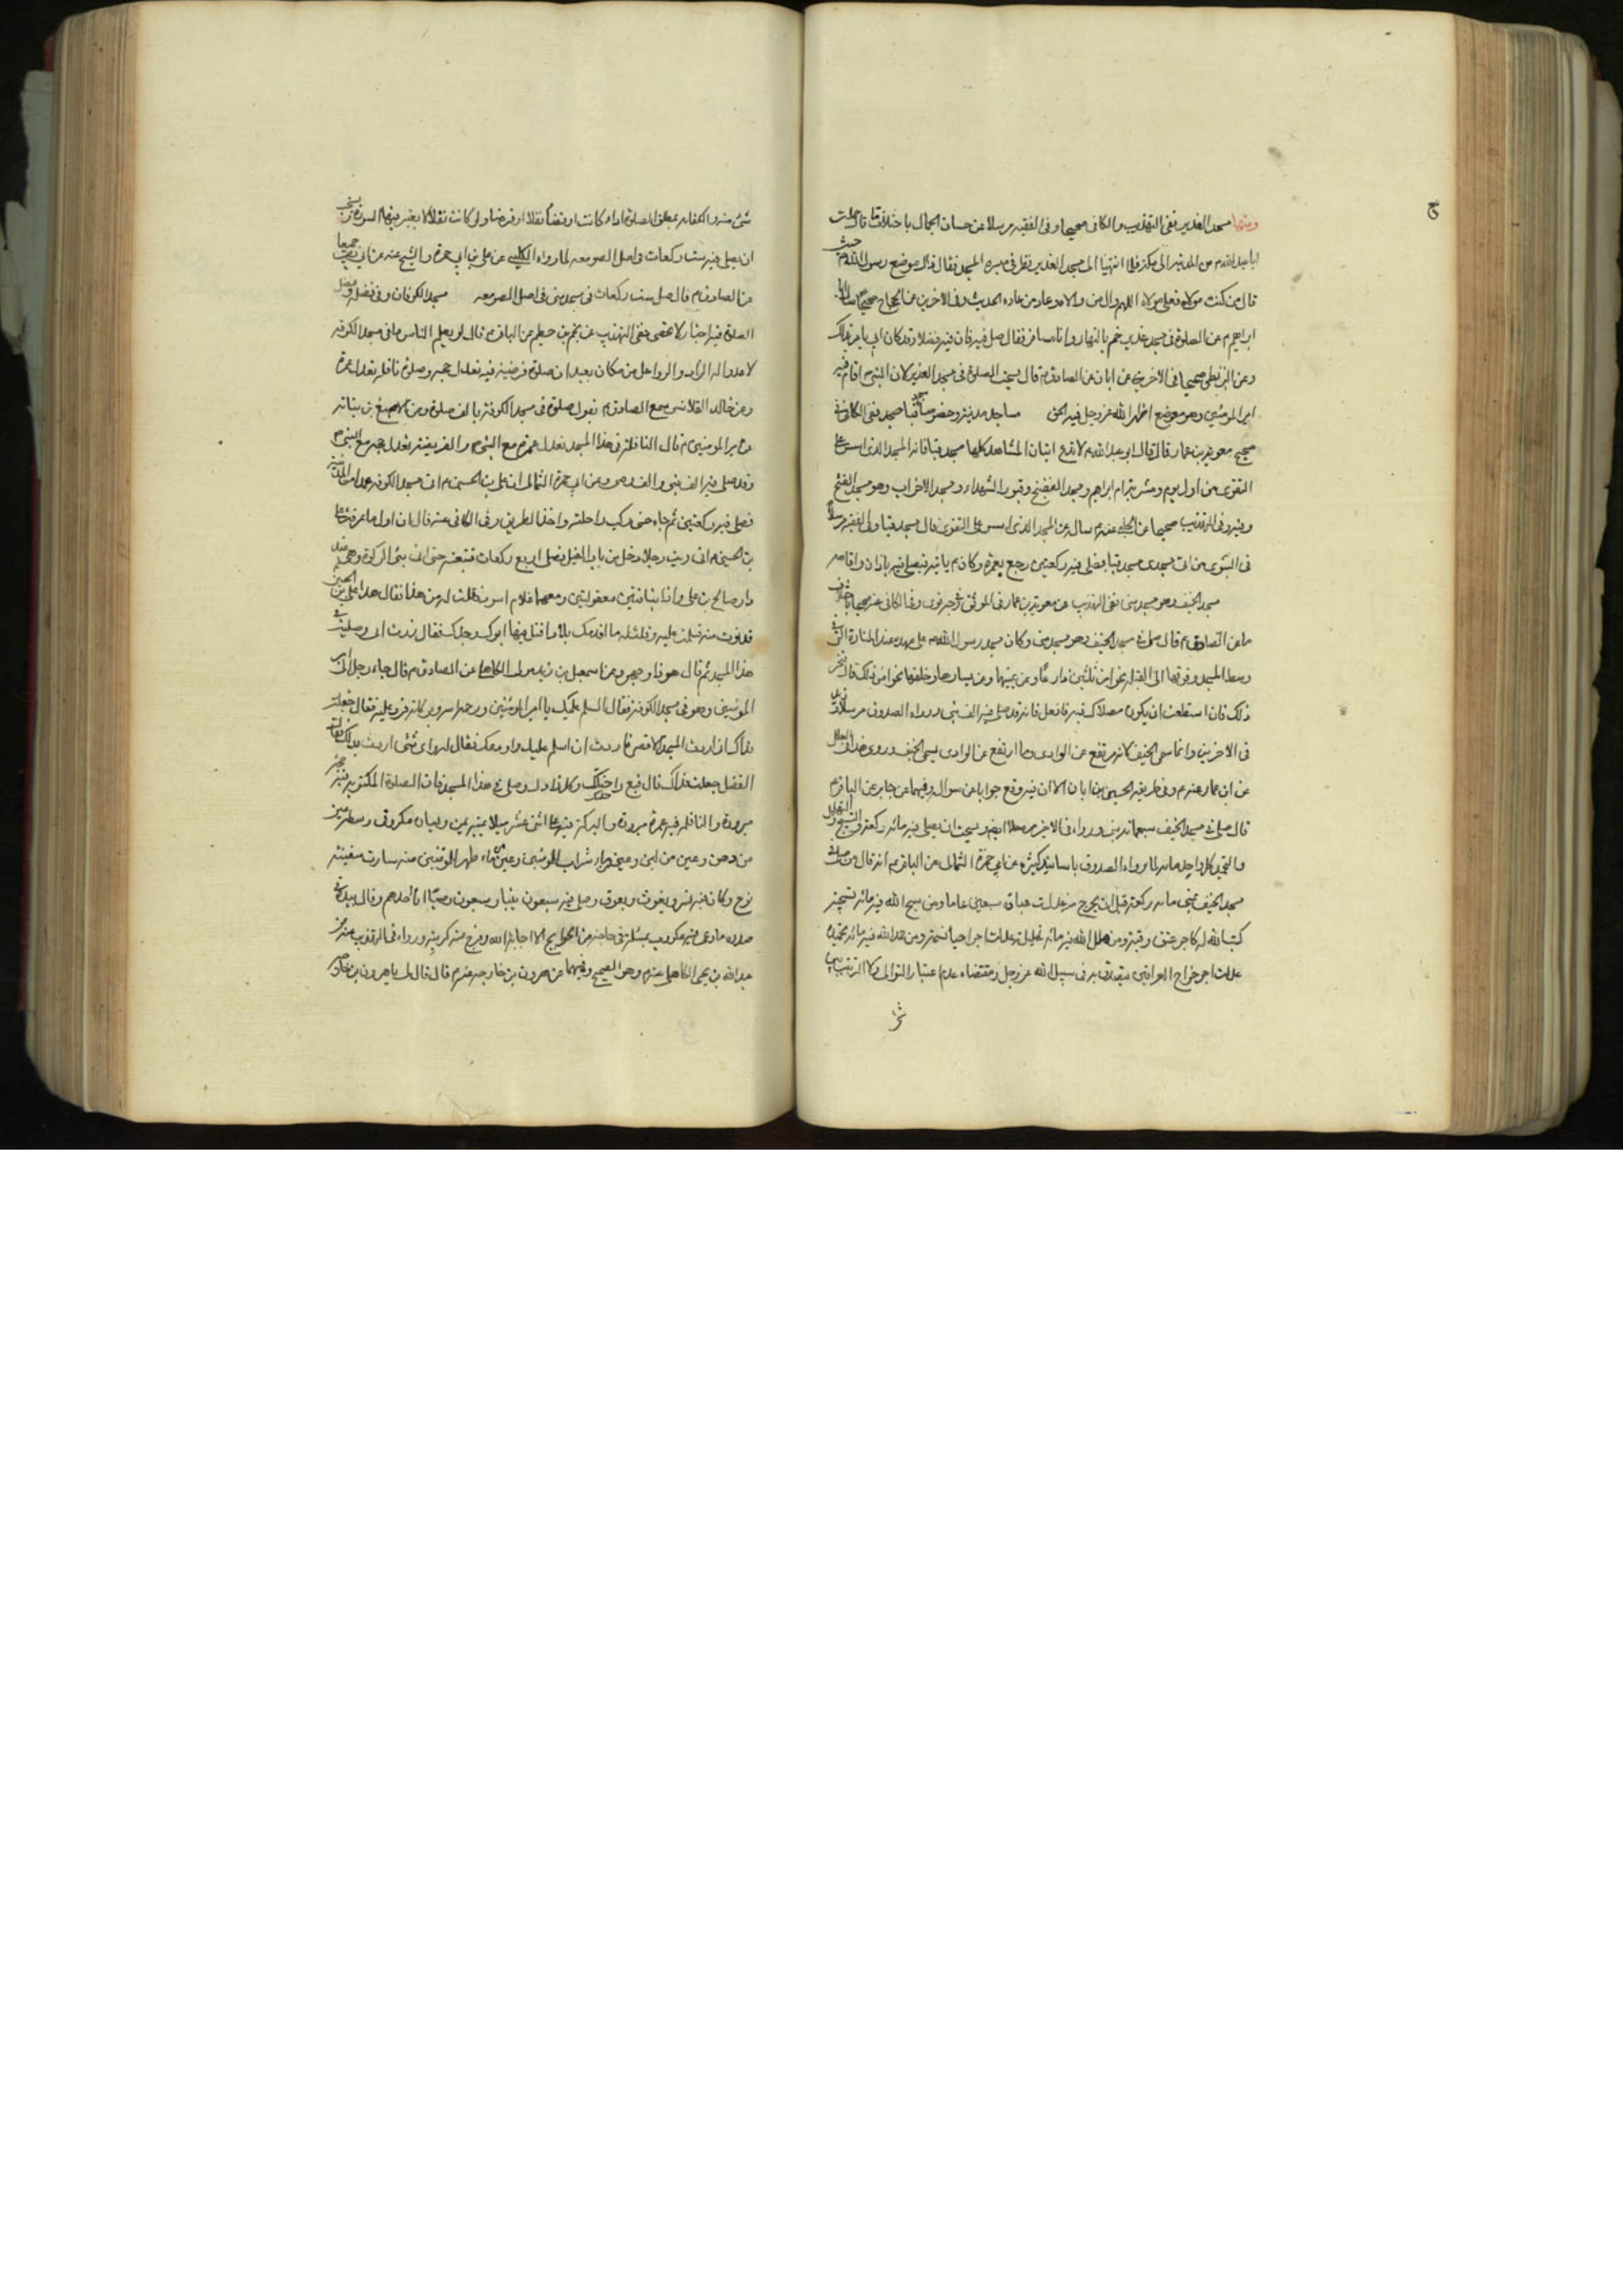 ومنها مسجد الغدير ففي التهذيب والكافي صحيحا وفي الفقيه مرسلا عن حسان الجمال باختلاف ما قال حملت
ابا عبد الله م من المدينة الى مكة فلما انتهينا الى مسجد الغدير نظر في ميسرة المسجد فقال ذاك موضع رسول الله ص حيث
قال من كنت مولاه فعلي مولاه اللهم وال من والاه وعاد من عاداه الحديث وفي الاخرين عن الحجاج صحيحا
ابراهيم م عن الصلوة في مسجد غدير خم بالنهار وانا مسافر فقال صل فيه فان فيه فضلا وقد كان ابي يامر بذلك
وعن البزنطي صحيحا في الاخرين عن ابان عن الصادق م قال يستحب الصلوة في مسجد الغدير لان النبي م اقام فيه
امير المؤمنين وهو موضع اظهر الله عز وجل فيه الحق مساجد مدينة وخصوصا مسجد قبا ففي الكافي في
صحيح معوية بن عمار قال قال ابو عبد الله م لا تدع اتيان المشاهد كلها مسجد قبا فانه المسجد الذي اسس على
التقوى من اول يوم ومشربة ام ابراهيم ومسجد الفضيخ وقبور الشهداء ومسجد الاحزاب وهو مسجد الفتح
وفيه وفي التهذيب صحيحا عن الحلبي عنه م سالته عن المسجد الذي اسس على التقوى قال مسجد قبا وفي الفقيه مرسلا
في النبوي من اتى مسجدي مسجد قبا فصلى فيه ركعتين رجع بعمرة وكان م ياتيه فيصلي فيه باذان واقامة
مسجد الخيف وهو مسجد منى ففي التهذيب عن معوية بن عمار في الموثق وفي الكافي عنه صحيحا
ما عن الصادق م قال صل في مسجد الخيف وهو مسجد منى وكان مسجد رسول الله م على عهده عند المنارة التي في
وسط المسجد وفوقها الى القبلة نحوا من ثلثين ذراعا وعن يمينها وعن يسارها وخلفها نحوا من ذلك قال فتحر
ذلك فان استطعت ان يكون مصلاك فيه فافعل فانه قد صلى فيه الف نبي ورواه الصدوق مرسلا
في الاخرين وانما سمي الخيف لانه مرتفع عن الوادي وما ارتفع عن الوادي سمي الخيف وروي هذا في العلل
عن ابن عمار عنه م وفي طريقه الحسين بن ابان الا ان فيه وقع جوابا عن سوال وفيهما عن جابر عن الباقر م
قال صلى في مسجد الخيف سبعمائة نبي ورواه في الاخير مرسلا ايضا ويستحب ان يصلي فيه مائة ركعة والتسبيح والتهليل
والتحميد كل واحد مائة لما رواه الصدوق باسانيد كثيرة عن ابي حمزة الثمالي عن الباقر م انه قال من صلى في
مسجد الخيف بمنى مائة ركعة قبل ان يخرج منه عدلت عبادة سبعين عاما ومن سبح الله فيه مائة تسبيحة
كتب الله له كاجر عتق رقبة ومن هلل الله فيه مائة تهليلة عدلت اجر احياء نسمة ومن حمد الله فيه مائة تحميدة
عدلت اجر خراج العراقين يتصدق به في سبيل الله عز وجل ومقتضاه عدم اعتبار التوالي ولا الترتيب بين
شئ منه والكفاية بمطلق الصلوة اداء كانت او قضاء نفلا او فرضا
ان يصلي فيه ست ركعات في اصل الصومعة لما رواه الكليني عن علي بن ابي حمزة والشيخ عنه عن ابي بصير جميعا
عن الصادق م قال صل ست ركعات في مسجد منى في اصل الصومعة مسجد الكوفة فان في فضله وفضل
الصلوة فيه اخبارا لا تحصى ففي التهذيب عن نجم بن حطيم عن الباقر م قال لو يعلم الناس ما في مسجد الكوفة
لاعدوا له الزاد والرواحل من مكان بعيد ان صلوة فريضة فيه تعدل حجة وصلوة نافلة تعدل عمرة
وعن خالد القلانسي سمع الصادق م يقول صلوة في مسجد الكوفة بالف صلوة وعن الاصبغ بن نباتة
عن امير المؤمنين م قال النافلة في هذا المسجد تعدل عمرة مع النبي م والفريضة تعدل حجة مع النبي م
وقد صلى فيه الف نبي والف وصي وعن ابي حمزة الثمالي ان علي بن الحسين م اتى مسجد الكوفة عمدا من المدينة
فصلى فيه ركعتين ثم جاء حتى ركب راحلته واخذ الطريق وفي الكافي عنه قال ان اول ما عرفت علي
بن الحسين م اني رايت رجلا دخل من باب الفيل فصلى اربع ركعات فتبعته حتى اتى بئر الزكوة وهي عند
دار صالح بن علي واذا بناقتين معقولتين ومعهما غلام اسود فقلت له من هذا فقال هذا علي بن الحسين
فدنوت منه فسلمت عليه وقلت له ما اقدمك بلادا قتل فيها ابوك وجدك فقال زرت ابي وصليت في
هذا المسجد ثم قال هو ذا وجهي وعن اسمعيل بن زيد مولى الكاهلي عن الصادق م قال جاء رجل الى امير
المؤمنين وهو في مسجد الكوفة فقال السلم عليك يا امير المؤمنين ورحمة الله وبركاته فرد عليه فقال جعلت
فداك اني اردت المسجد الاقصى فاردت ان اسلم عليك واودعك فقال له واي شئ اردت بذلك فقال
الفضل جعلت فداك قال فبع راحلتك وكل زادك وصل في هذا المسجد فان الصلوة المكتوبة فيه حجة
مبرورة والنافلة فيه عمرة مبرورة والبركة فيه على اثنى عشر ميلا يمينه يمن ويساره مكر وفي وسطه عين
من دهن وعين من لبن وعين من ماء شراب للمؤمنين وعين من ماء طهر للمؤمنين منه سارت سفينة
نوح وكان فيه نسر ويغوث ويعوق وصلى فيه سبعون نبيا وسبعون وصيا انا احدهم وقال بيده في
صدره ما دعى فيه مكروب بمسئلة في حاجة من الحوايج الا اجابه الله وفرج عنه كربته ورواه في التهذيب
عبد الله بن يحيى الكاهلي عنه م وهو الصحيح وفيهما عن هرون بن خارجة عنه م قال قال لي يا هرون بن خارجة